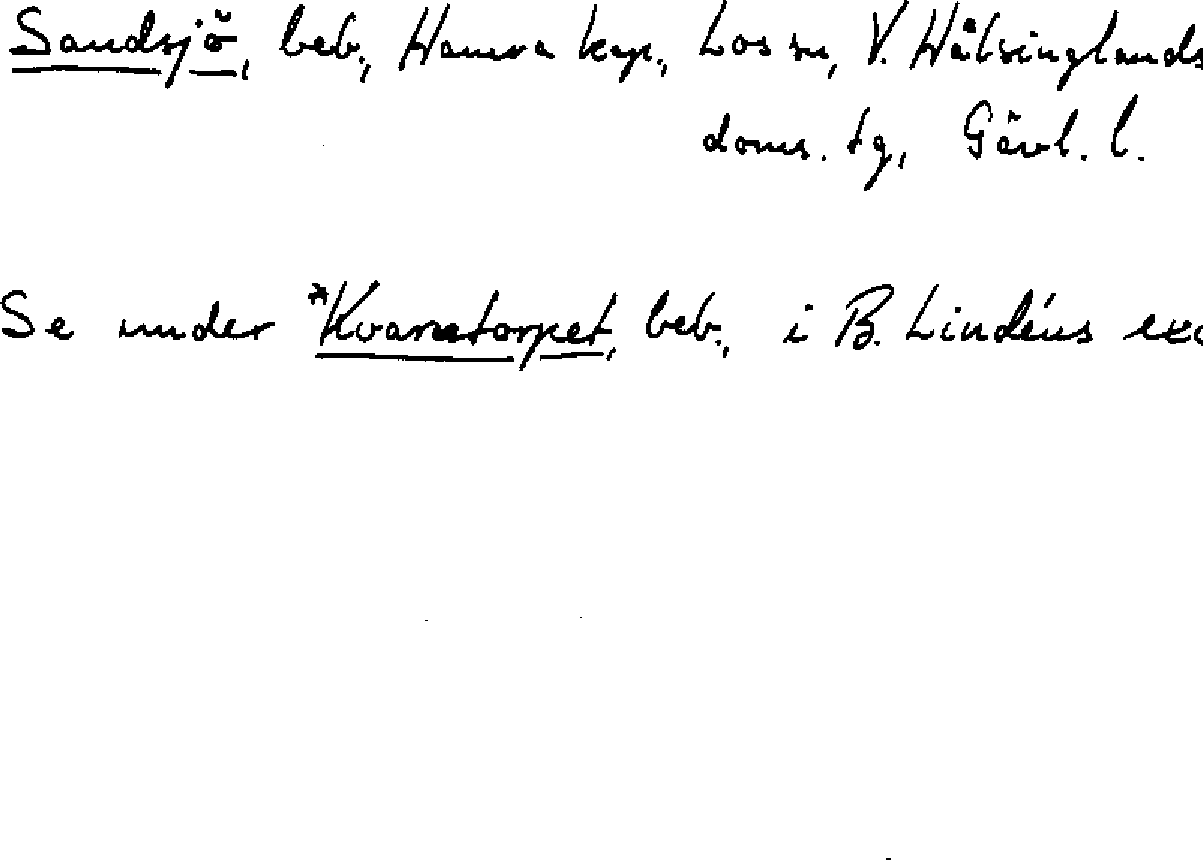 Sandsjö, beb., Hamra kap., Los sn, V. Hälsinglands
doms. tg, Gävl. l.
Se under *Kvarntorpet, beb., i B. Lindéns exc